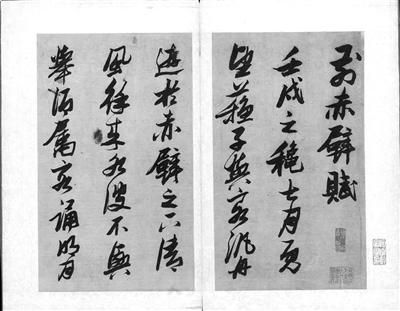 前赤壁賦
壬戌之穐七月既
望蘓子與客泛舟
遊於赤壁之下清
風徐来水波不興
舉酒屬客誦明月